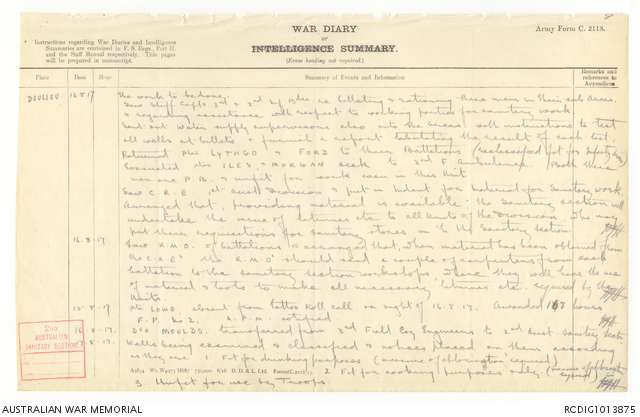 WAR DIARY
or
INTELLIGENCE SUMMARY.
(Erase heading not required.)
Army Form C. 2118.
Instructions regarding War Diaries and Intelligence
Summaries are contained in F. S. Regs., Part II.
and the Staff Manual respectively. Title pages
will be prepared in manuscript.
Place Date Hour Summary of Events and Information Remarks and references to Appendices
DOULIEU 16.8.17 the work to be done.
Saw Staff Capts re billeting & rationing these men in their sub areas
& regarding assistance with respect to working parties for sanitary work
Sent out water supply supervisors also into the areas with instructions to test
all wells at billets & furnish a report tabulating the result of each test.
Returned Ptes LYTHGO & FORD to their Battalions
Evacuated Ptes ILES & MORGAN sick to 3rd F Ambulance. Both these
men are P.B. & unfit for work even in this Unit
Saw C.R.E. 1st Aust Division & put in indent for material for sanitary work.
Arranged that, providing material is available the Sanitary Section will
undertake the issue of latrines etc to all Units of the Division. They may
put their requisitions for sanitary stores in to the Sanitary Section
16.8.17. Saw R.M.O. of battalions & arranged that, when material has been obtained from
the C.R.E. the R.M.O. should send a couple of carpenters from each
battalion to the sanitary section workshops. There they will have the use
of material & tools to make all necessary latrines etc. required by their
Units
Pte LOND. absent from tattoo Roll call on night of 16.8.17. Awarded 167 hours
F.P. No 2. A.P.M. notified.
16.8.17. MOULDS. transferred from 3rd Full Coy Engineers to 2nd Aust Sanitary Sectn
Wells being examined & classified & notices placed on them according
as they are 1 Fit for drinking purposes (amount of chlorination required)
2 Fit for cooking purposes only
3 Unfit for use by Troops.
2ND
AUSTRALIAN
SANITARY SECTION
AUSTRALIAN WAR MEMORIAL
RCDIG1013875